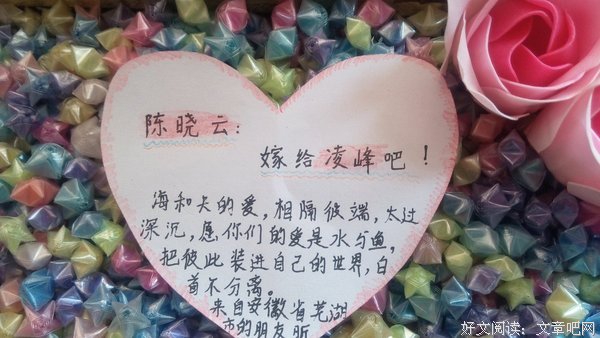 陈晓云：
嫁给凌峰吧！
海和天的爱，相隔彼端，太过
深沉，愿你们的爱是水与鱼，
把彼此装进自己的世界，白
首不分离。
来自安徽省芜湖
市的朋友
好文阅读：文章吧网